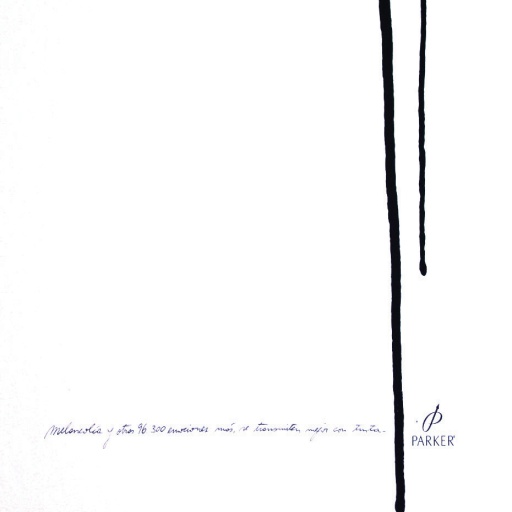 Melancolía y otras 96 300 emociones más, se transmiten mejor con tinta.
PARKER